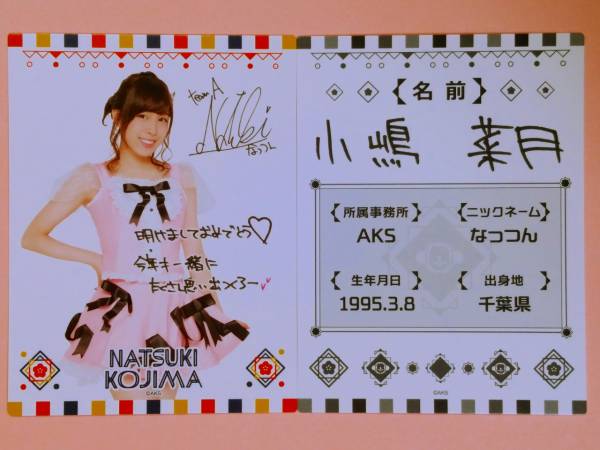 Team A
Natsuki
なっつん
明けましておめでとう♡
今年も一緒に
たくさん思い出つくろー
NATSUKI
KOJIMA
©AKS
【名前】
小嶋 菜月
【所属事務所】
AKS
【ニックネーム】
なっつん
【生年月日】
1995.3.8
【出身地】
千葉県
©AKS